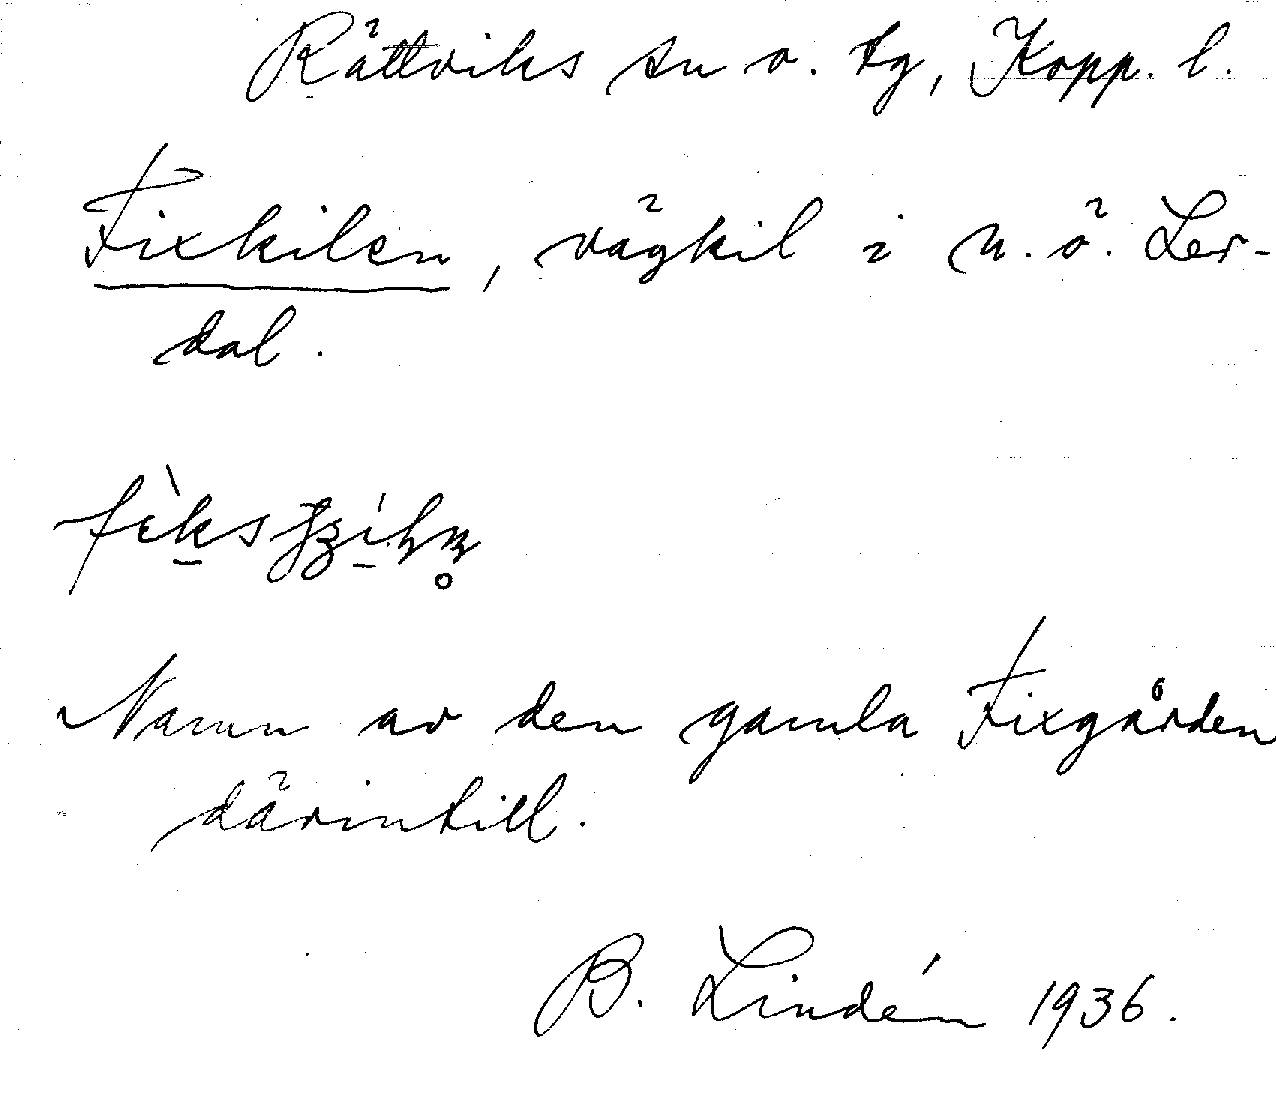 Rättviks sn o. tg, Kopp. l.
Fixkilen, vägkil i n.ö. Ler-
dal.
Namn av den gamla Fixgården
därintill.
B. Lindén 1936.